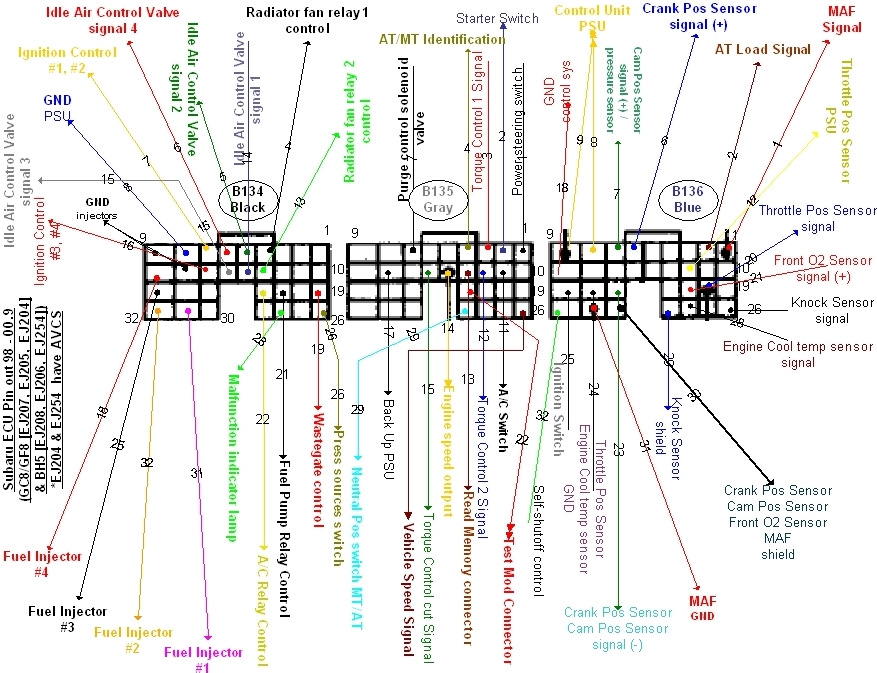 Idle Air Control Valve
signal 4
Radiator fan relay1
control
Starter Switch
Control Unit
PSU
Crank Pos Sensor
signal (+)
MAF
Signal
Ignition Control
#1, #2
Idle Air Control Valve
signal 2
Idle Air Control Valve
signal 1
Radiator fan relay 2
control
AT/MT Identification
Purge control solenoid
valve
Torque Control 1 Signal
Power steering switch
control sys
GND
Cam Pos Sensor
signal (+) /
pressure sensor
AT Load Signal
Throttle Pos Sensor
PSU
GND
PSU
Idle Air Control Valve
signal 3
GND
injectors
Ignition Control
#3, #4
B134
Black
B135
Gray
B136
Blue
Throttle Pos Sensor
signal
Front O2 Sensor
signal (+)
Knock Sensor
signal
Engine Cool temp sensor
signal
15
8
7
6
5
14
4
13
15
16
9
1
10
19
26
32
30
9
7
4
3
1
10
19
26
9
18
9
8
7
6
2
1
12
11
20
10
21
9
26
28
Subaru ECU Pin out 98 - 00.9
(GC8/GF8 [EJ207, EJ205, EJ204]
& BH5 [EJ208, EJ206, EJ254])
*EJ204 & EJ254 have AVCS
18
25
32
31
28
22
21
19
26
29
17
29
15
14
13
12
11
22
32
25
24
23
31
29
30
Malfunction indicator lamp
A/C Relay Control
Fuel Pump Relay Control
Wastegate control
Press sources switch
Neutral Pos switch MT/AT
Back Up PSU
Vehicle Speed Signal
Torque Control cut Signal
Engine speed output
Read Memory connector
Torque Control 2 Signal
A/C Switch
Test Mod Connector
Self-shutoff control
Ignition Switch
Throttle Pos Sensor
Engine Cool temp sensor
GND
Knock Sensor
shield
Crank Pos Sensor
Cam Pos Sensor
Front O2 Sensor
MAF
shield
Fuel Injector
#4
Fuel Injector
#3
Fuel Injector
#2
Fuel Injector
#1
Crank Pos Sensor
Cam Pos Sensor
signal (-)
MAF
GND